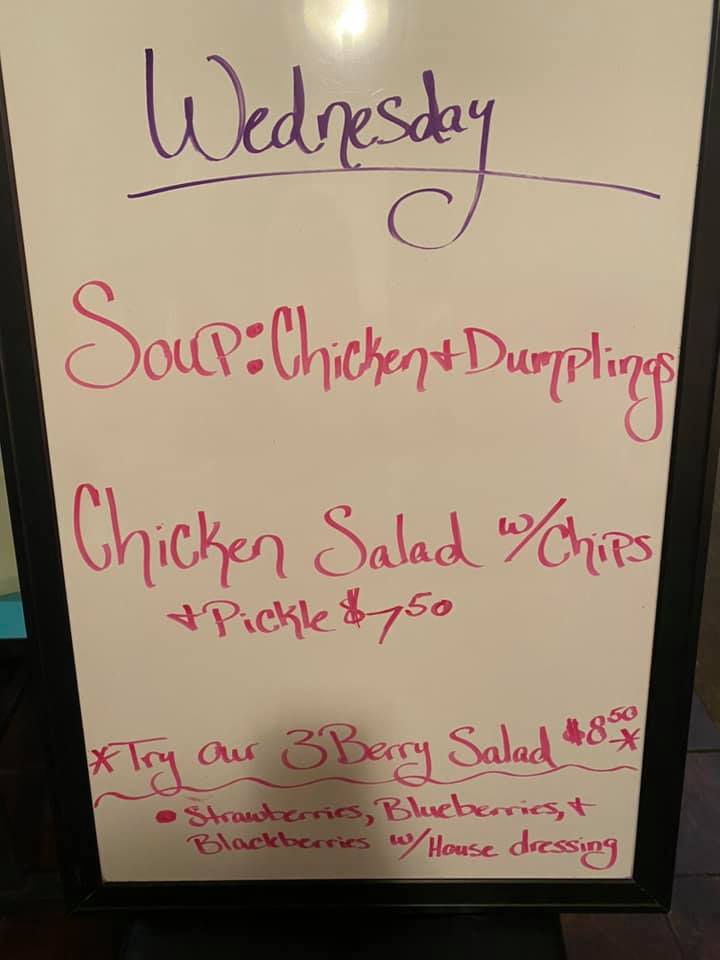 Wednesday
Soup: Chicken + Dumplings
Chicken Salad w/Chips
+ Pickle $7.50
*Try our 3 Berry Salad $8.50*
• Strawberries, Blueberries, +
Blackberries w/House dressing